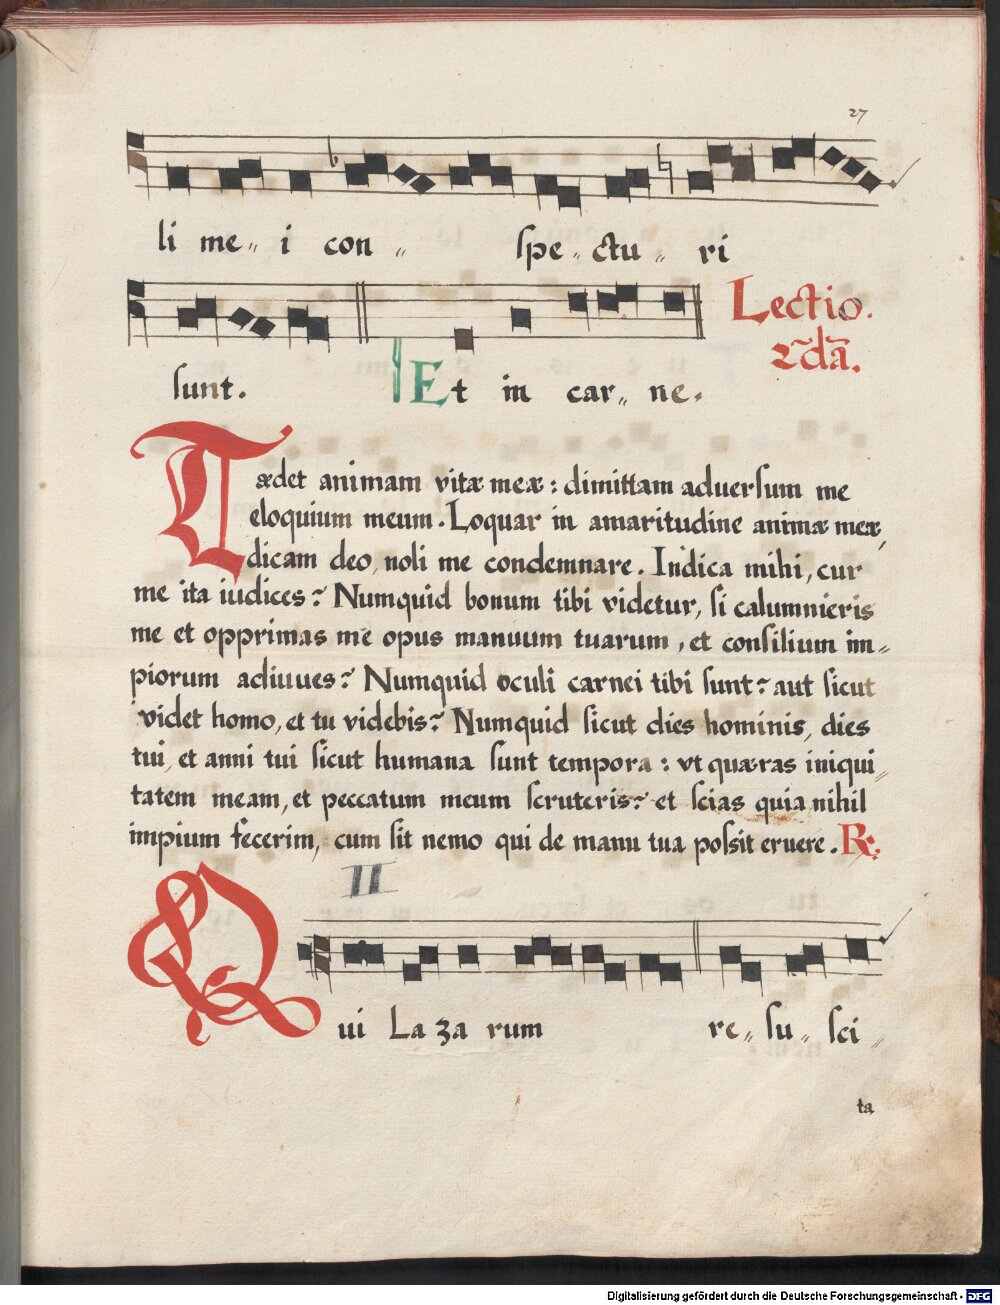 27
li me〃 i con 〃 spe〃 ctu 〃 ri
sunt. Et in car〃 ne.
Lectio.
2.̃dã.
Tædet animam vitæ meæ : dimittam aduersum me
eloquium meum. Loquar in amaritudine animæ meæ,
dicam deo, noli me condemnare. Indica mihi, cur
me ita iudices? Numquid bonum tibi videtur, si calumnieris
me et opprimas me opus manuum tuarum, et consilium im〃
piorum adiuues? Numquid oculi carnei tibi sunt? aut sicut
videt homo, et tu videbis? Numquid sicut dies hominis, dies
tui, et anni tui sicut humana sunt tempora : vt quæras iniqui〃
tatem meam, et peccatum meum scruteris? et scias quia nihil
impium fecerim, cum sit nemo qui de manu tua possit eruere. ℟.
II
Qui La za rum re〃 su〃 sci〃
ta
Digitalisierung gefördert durch die Deutsche Forschungsgemeinschaft - DFG